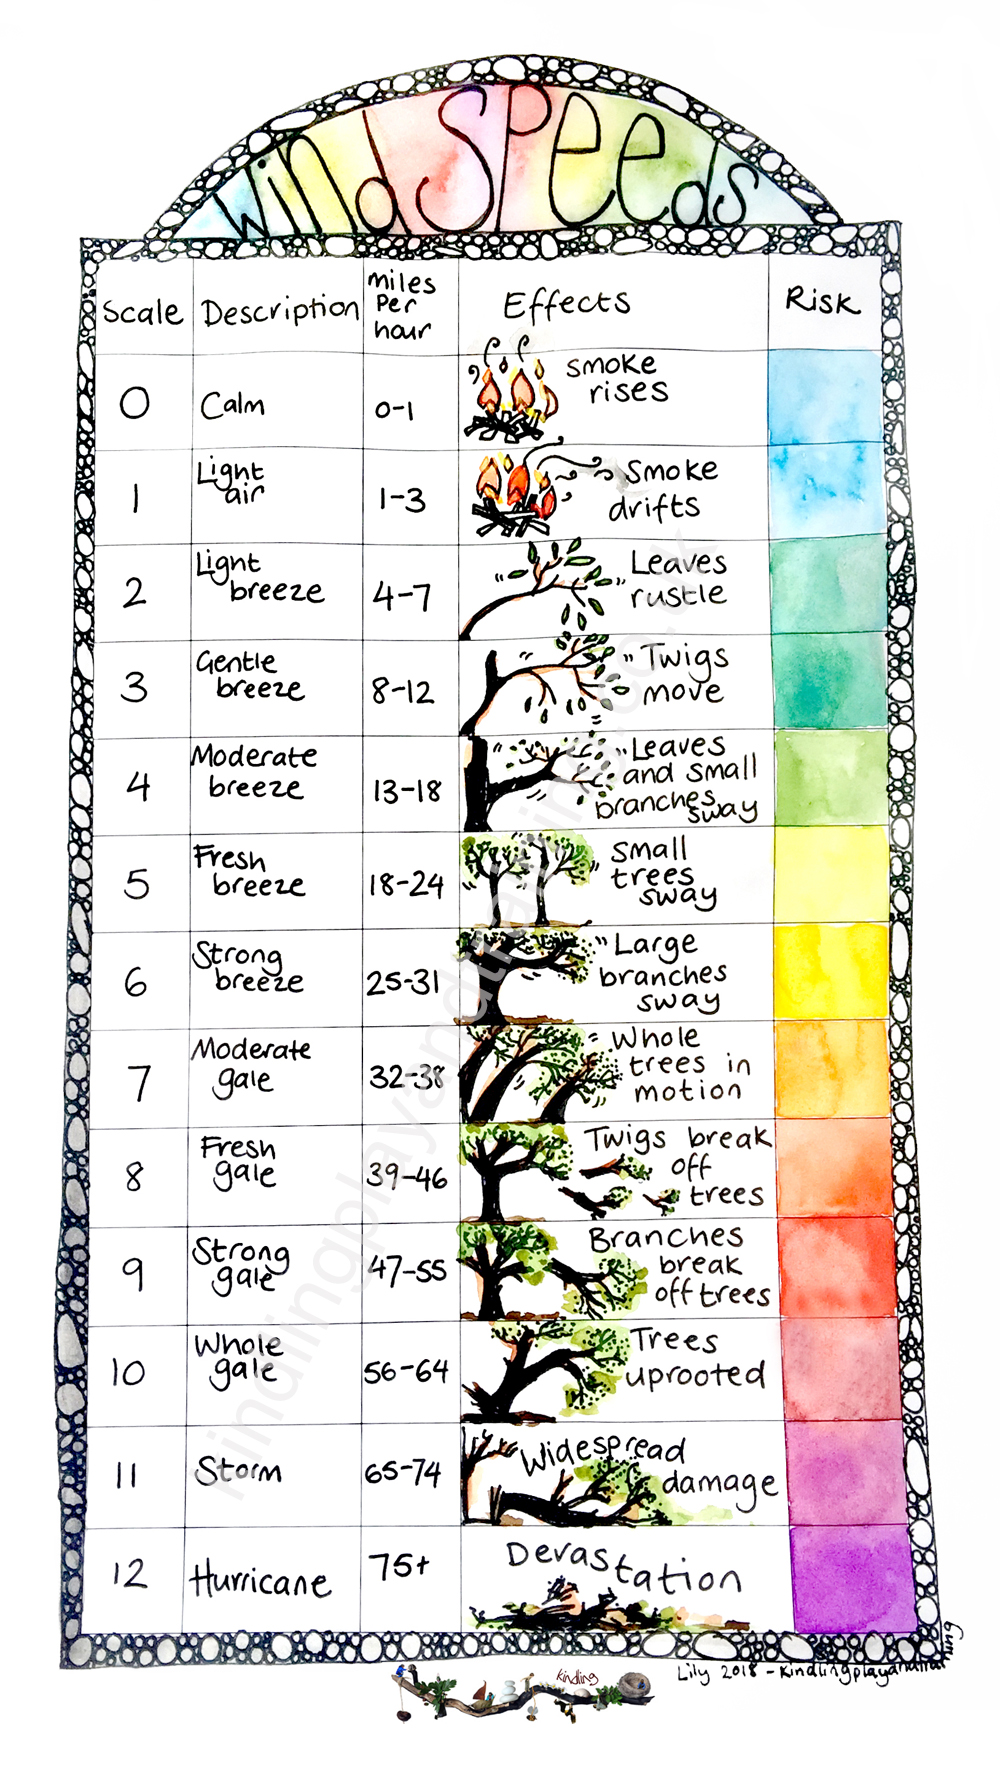 wind speeds
Scale Description miles per hour Effects Risk
0 Calm 0-1 smoke rises
1 Light air 1-3 Smoke drifts
2 Light breeze 4-7 Leaves rustle
3 Gentle breeze 8-12 Twigs move
4 Moderate breeze 13-18 Leaves and small branches sway
5 Fresh breeze 18-24 small trees sway
6 Strong breeze 25-31 Large branches sway
7 Moderate gale 32-38 Whole trees in motion
8 Fresh gale 39-46 Twigs break off trees
9 Strong gale 47-55 Branches break off trees
10 Whole gale 56-64 Trees uprooted
11 Storm 65-74 Widespread damage
12 Hurricane 75+ Devastation
kindling
Lily 2018 - Kindlingplayandtraining
kindlingplayandtraining.co.uk